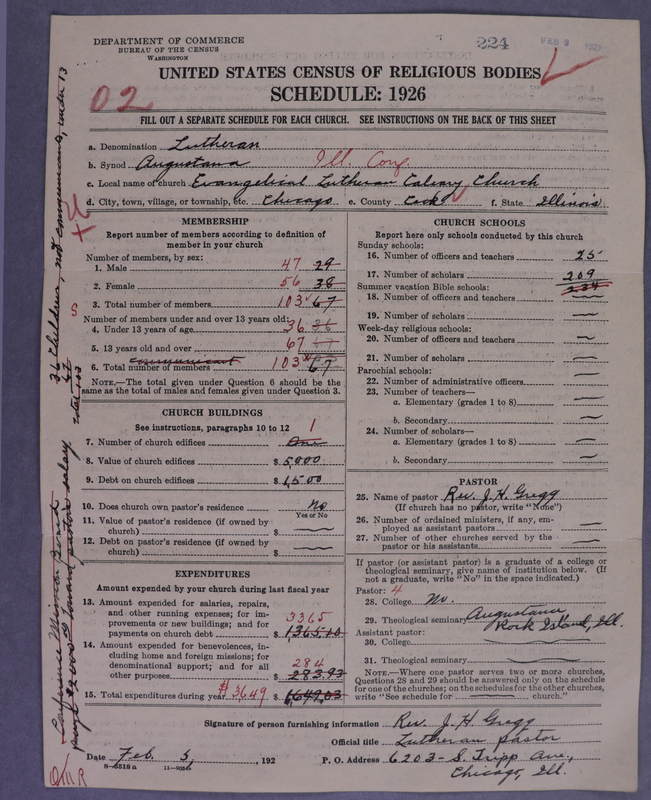 DEPARTMENT OF COMMERCE
BUREAU OF THE CENSUS
WASHINGTON
224
FEB 9 1927
UNITED STATES CENSUS OF RELIGIOUS BODIES
SCHEDULE: 1926
02
FILL OUT A SEPARATE SCHEDULE FOR EACH CHURCH. SEE INSTRUCTIONS ON THE BACK OF THIS SHEET
a. Denomination Lutheran
b. Synod Augustana Ill. Conf.
c. Local name of church Evangelical Lutheran Calvary Church
d. City, town, village, or township, etc. Chicago e. County Cook f. State Illinois
MEMBERSHIP
Report number of members according to definition of member in your church
Number of members, by sex:
1. Male 47 29
2. Female 56 38
3. Total number of members 103 67
Number of members under and over 13 years old:
4. Under 13 years of age 36 36
5. 13 years old and over 67
communicant
6. Total number of members 103 67
NOTE.—The total given under Question 6 should be the same as the total of males and females given under Question 3.
CHURCH BUILDINGS
See instructions, paragraphs 10 to 12
7. Number of church edifices 1 One
8. Value of church edifices $ 5,000
9. Debt on church edifices $ 1,500
10. Does church own pastor's residence No
Yes or No
11. Value of pastor's residence (if owned by church) $
12. Debt on pastor's residence (if owned by church) $
EXPENDITURES
Amount expended by your church during last fiscal year
13. Amount expended for salaries, repairs, and other running expenses; for improvements or new buildings; and for payments on church debt $ 3365 1365.10
14. Amount expended for benevolences, including home and foreign missions; for denominational support; and for all other purposes $ 284 283.93
15. Total expenditures during year $3,649 $ 1,649.03
CHURCH SCHOOLS
Report here only schools conducted by this church
Sunday schools:
16. Number of officers and teachers 25
17. Number of scholars 209
234
Summer vacation Bible schools:
18. Number of officers and teachers
19. Number of scholars
Week-day religious schools:
20. Number of officers and teachers
21. Number of scholars
Parochial schools:
22. Number of administrative officers
23. Number of teachers—
a. Elementary (grades 1 to 8)
b. Secondary
24. Number of scholars—
a. Elementary (grades 1 to 8)
b. Secondary
PASTOR
25. Name of pastor Rev. J. H. Gregg
(If church has no pastor, write "None")
26. Number of ordained ministers, if any, employed as assistant pastors
27. Number of other churches served by the pastor or his assistants
If pastor (or assistant pastor) is a graduate of a college or theological seminary, give name of institution below. (If not a graduate, write "No" in the space indicated.)
Pastor: 4
28. College No.
29. Theological seminary Augustana Rock Island, Ill.
Assistant pastor:
30. College
31. Theological seminary
NOTE.—Where one pastor serves two or more churches, Questions 28 and 29 should be answered only on the schedule for one of the churches; on the schedules for the other churches, write "See schedule for church."
Signature of person furnishing information Rev. J. H. Gregg
Official title Lutheran Pastor
Date Feb. 3, 192
P. O. Address 6203 - S. Tripp Ave, Chicago, Ill.
8—5518a
36 Children, not communicants, under 13
67
Total 103
Conference Mission Board
pays $2000 toward pastor salary